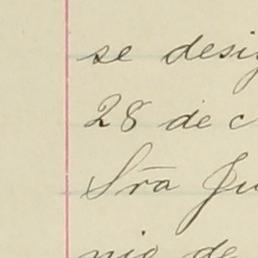 se desig
28 de c
Sra Ju
nio de